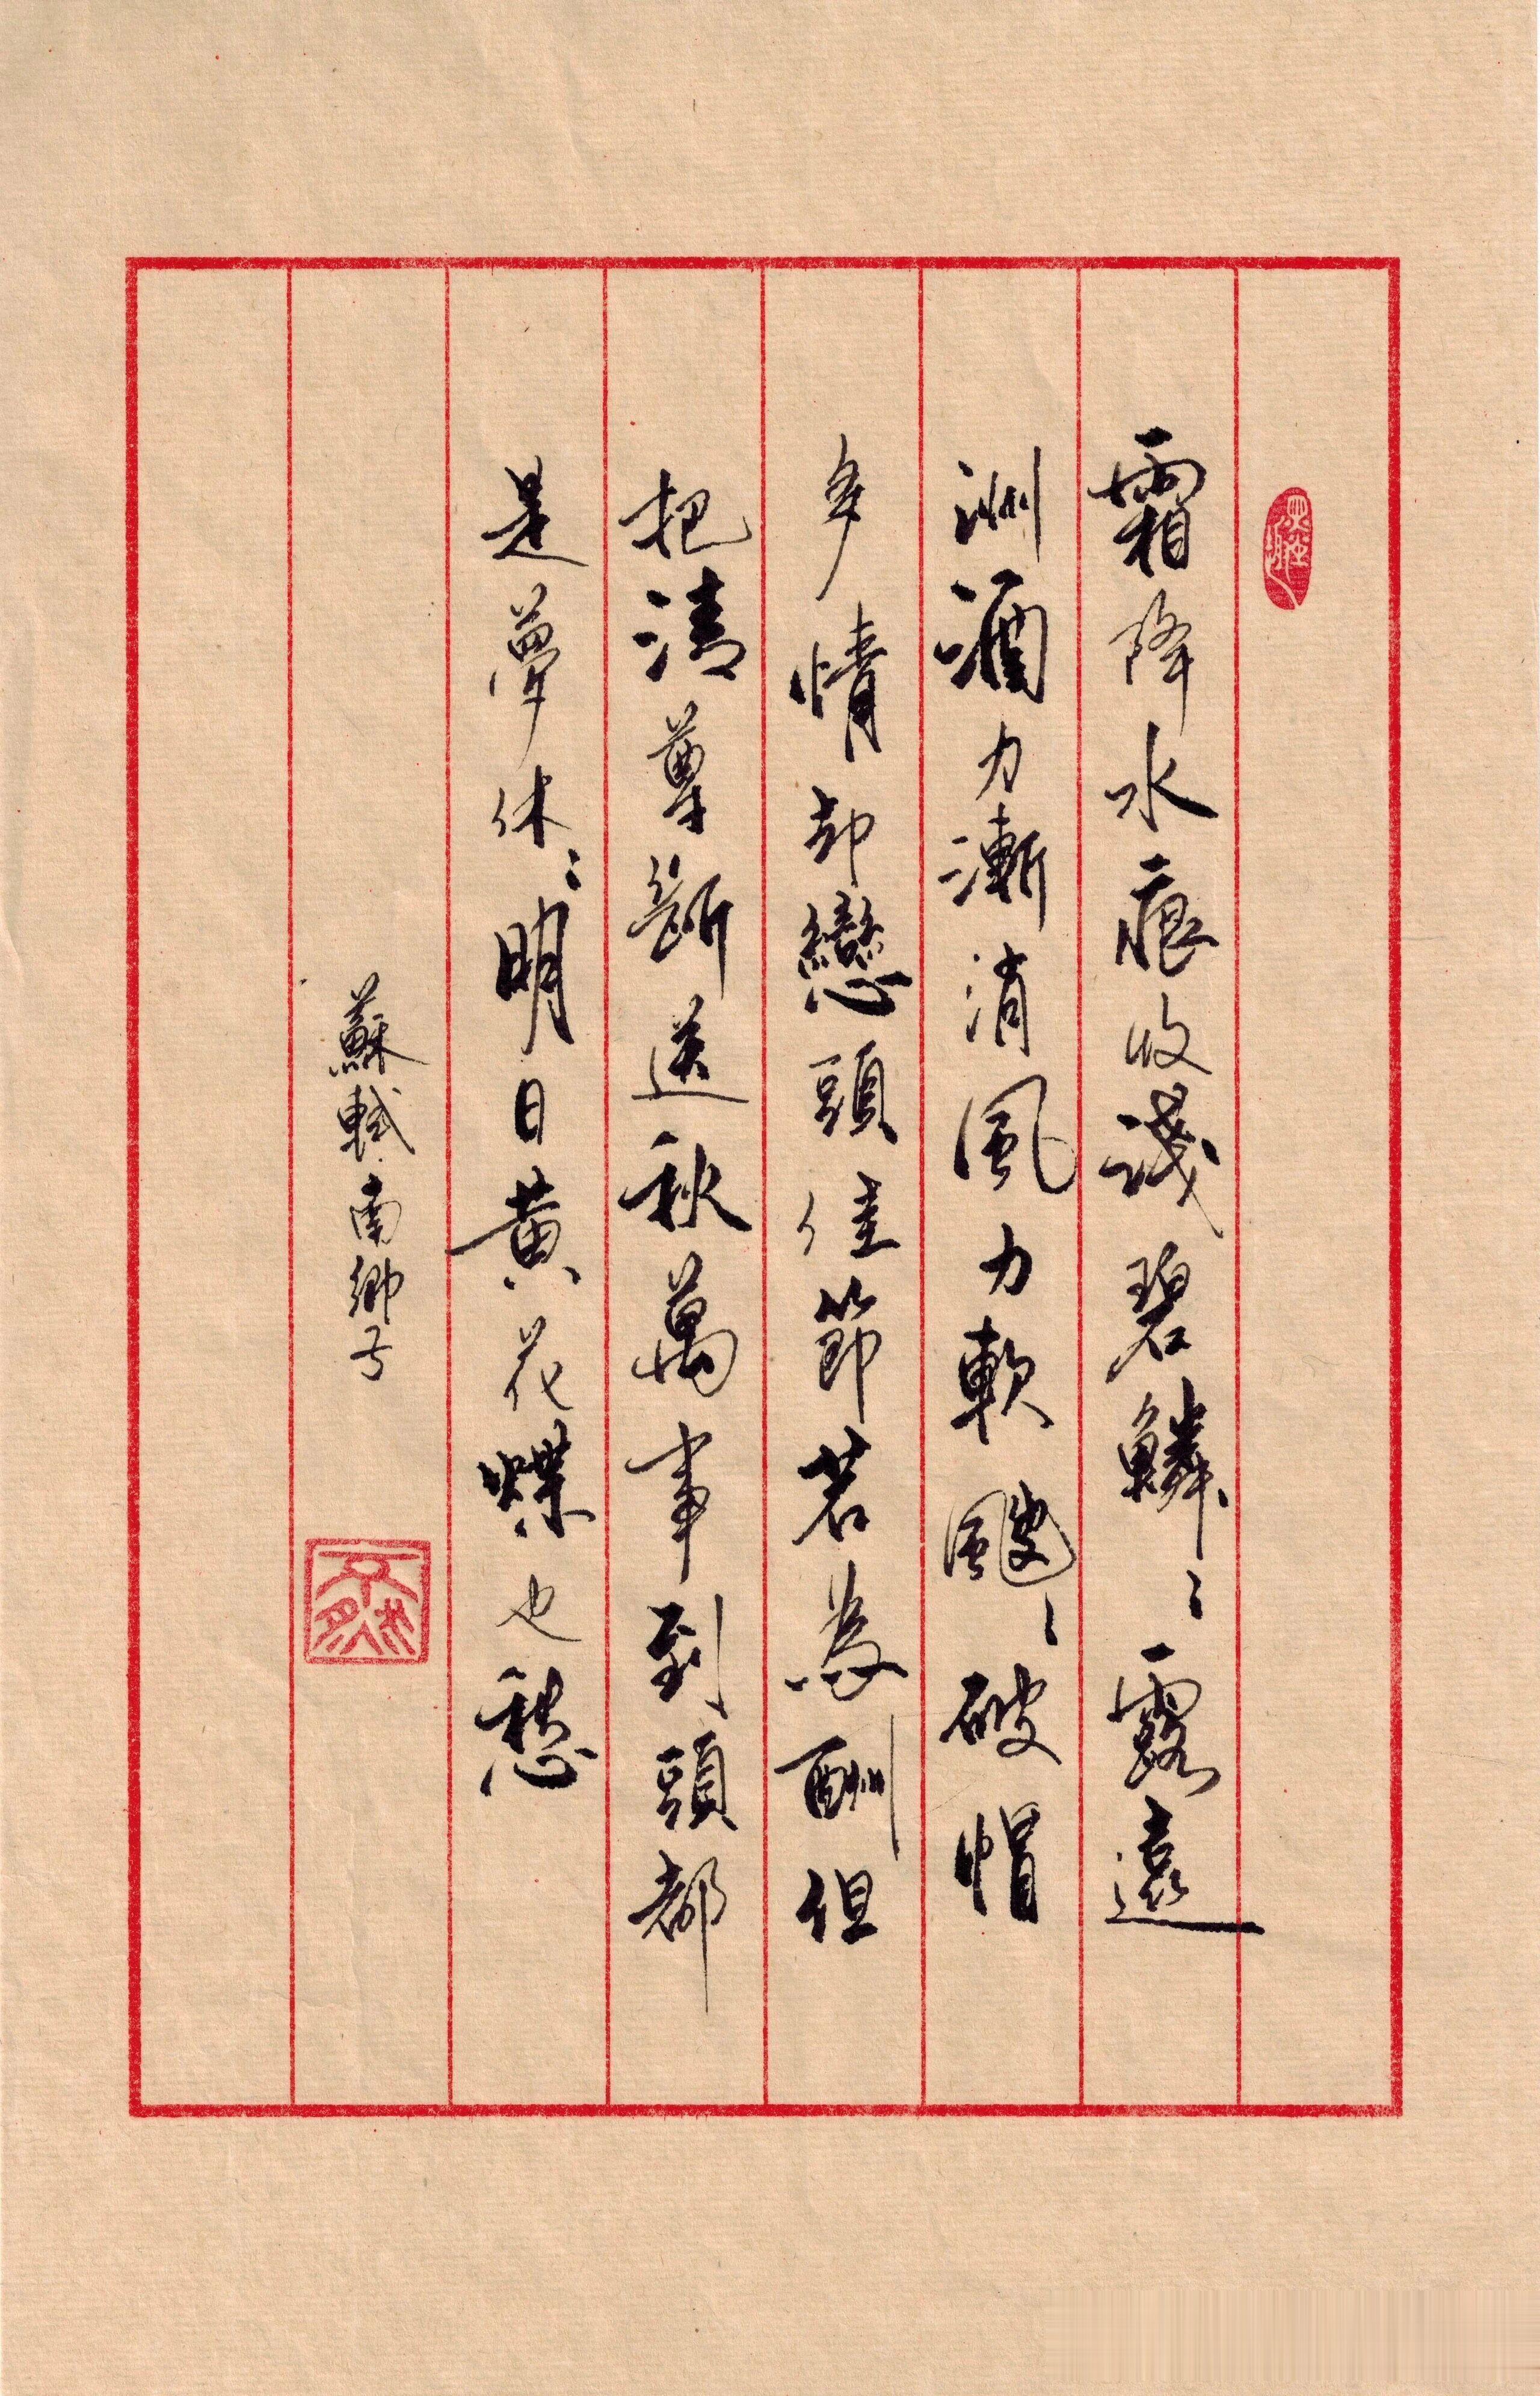 霜降水痕收淺碧鱗〻露遠
洲酒力漸消風力軟颼〻破帽
多情却戀頭佳節若為酬但
把清尊斷送秋萬事到頭都
是夢休〻明日黃花蝶也愁
蘇軾南鄉子